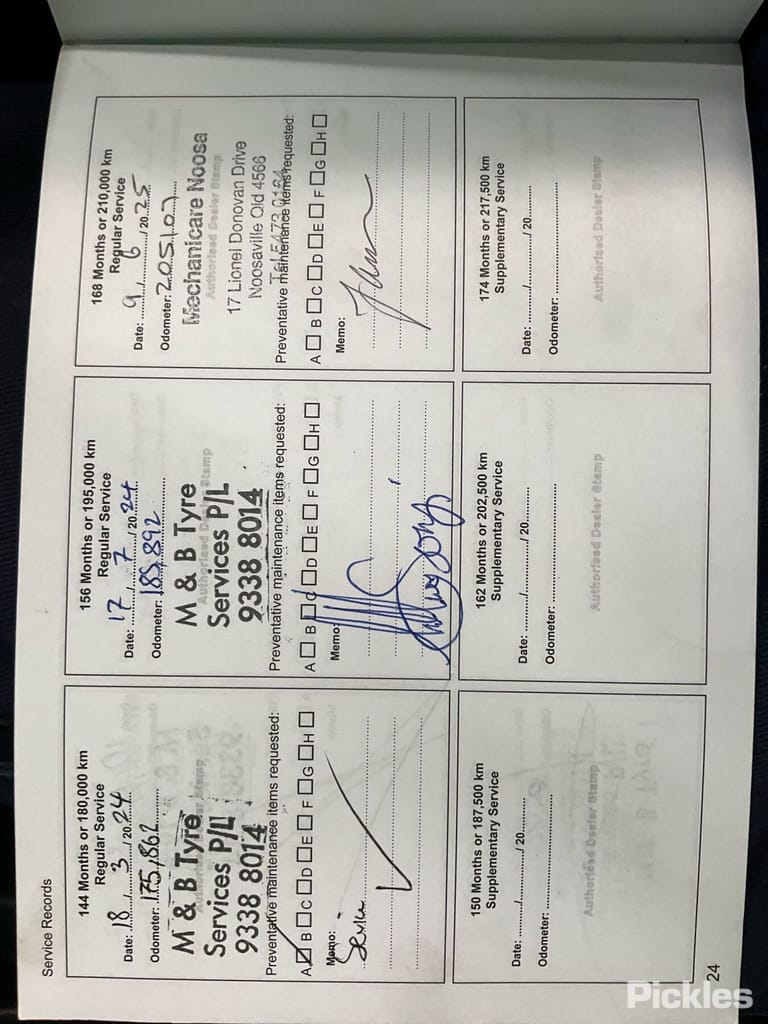 Service Records
144 Months or 180,000 km
Regular Service
Date: 18/3/2024
Odometer: 175,862
Authorised Dealer Stamp
M & B Tyre
Services P/L
9338 8014
Preventative maintenance items requested:
A B C D E F G H
Memo:
Service
156 Months or 195,000 km
Regular Service
Date: 17/7/2024
Odometer: 185,892
Authorised Dealer Stamp
M & B Tyre
Services P/L
9338 8014
Preventative maintenance items requested:
A B C D E F G H
Memo:
168 Months or 210,000 km
Regular Service
Date: 9/6/2025
Odometer: 205107
Mechanicare Noosa
Authorised Dealer Stamp
17 Lionel Donovan Drive
Noosaville Qld 4566
Preventative maintenance items requested:
A B C D E F G H
Memo:
150 Months or 187,500 km
Supplementary Service
Date: ........./........./ 20.........
Odometer:
Authorised Dealer Stamp
162 Months or 202,500 km
Supplementary Service
Date: ........./........./ 20.........
Odometer:
Authorised Dealer Stamp
174 Months or 217,500 km
Supplementary Service
Date: ........./........./ 20.........
Odometer:
Authorised Dealer Stamp
24
Pickles